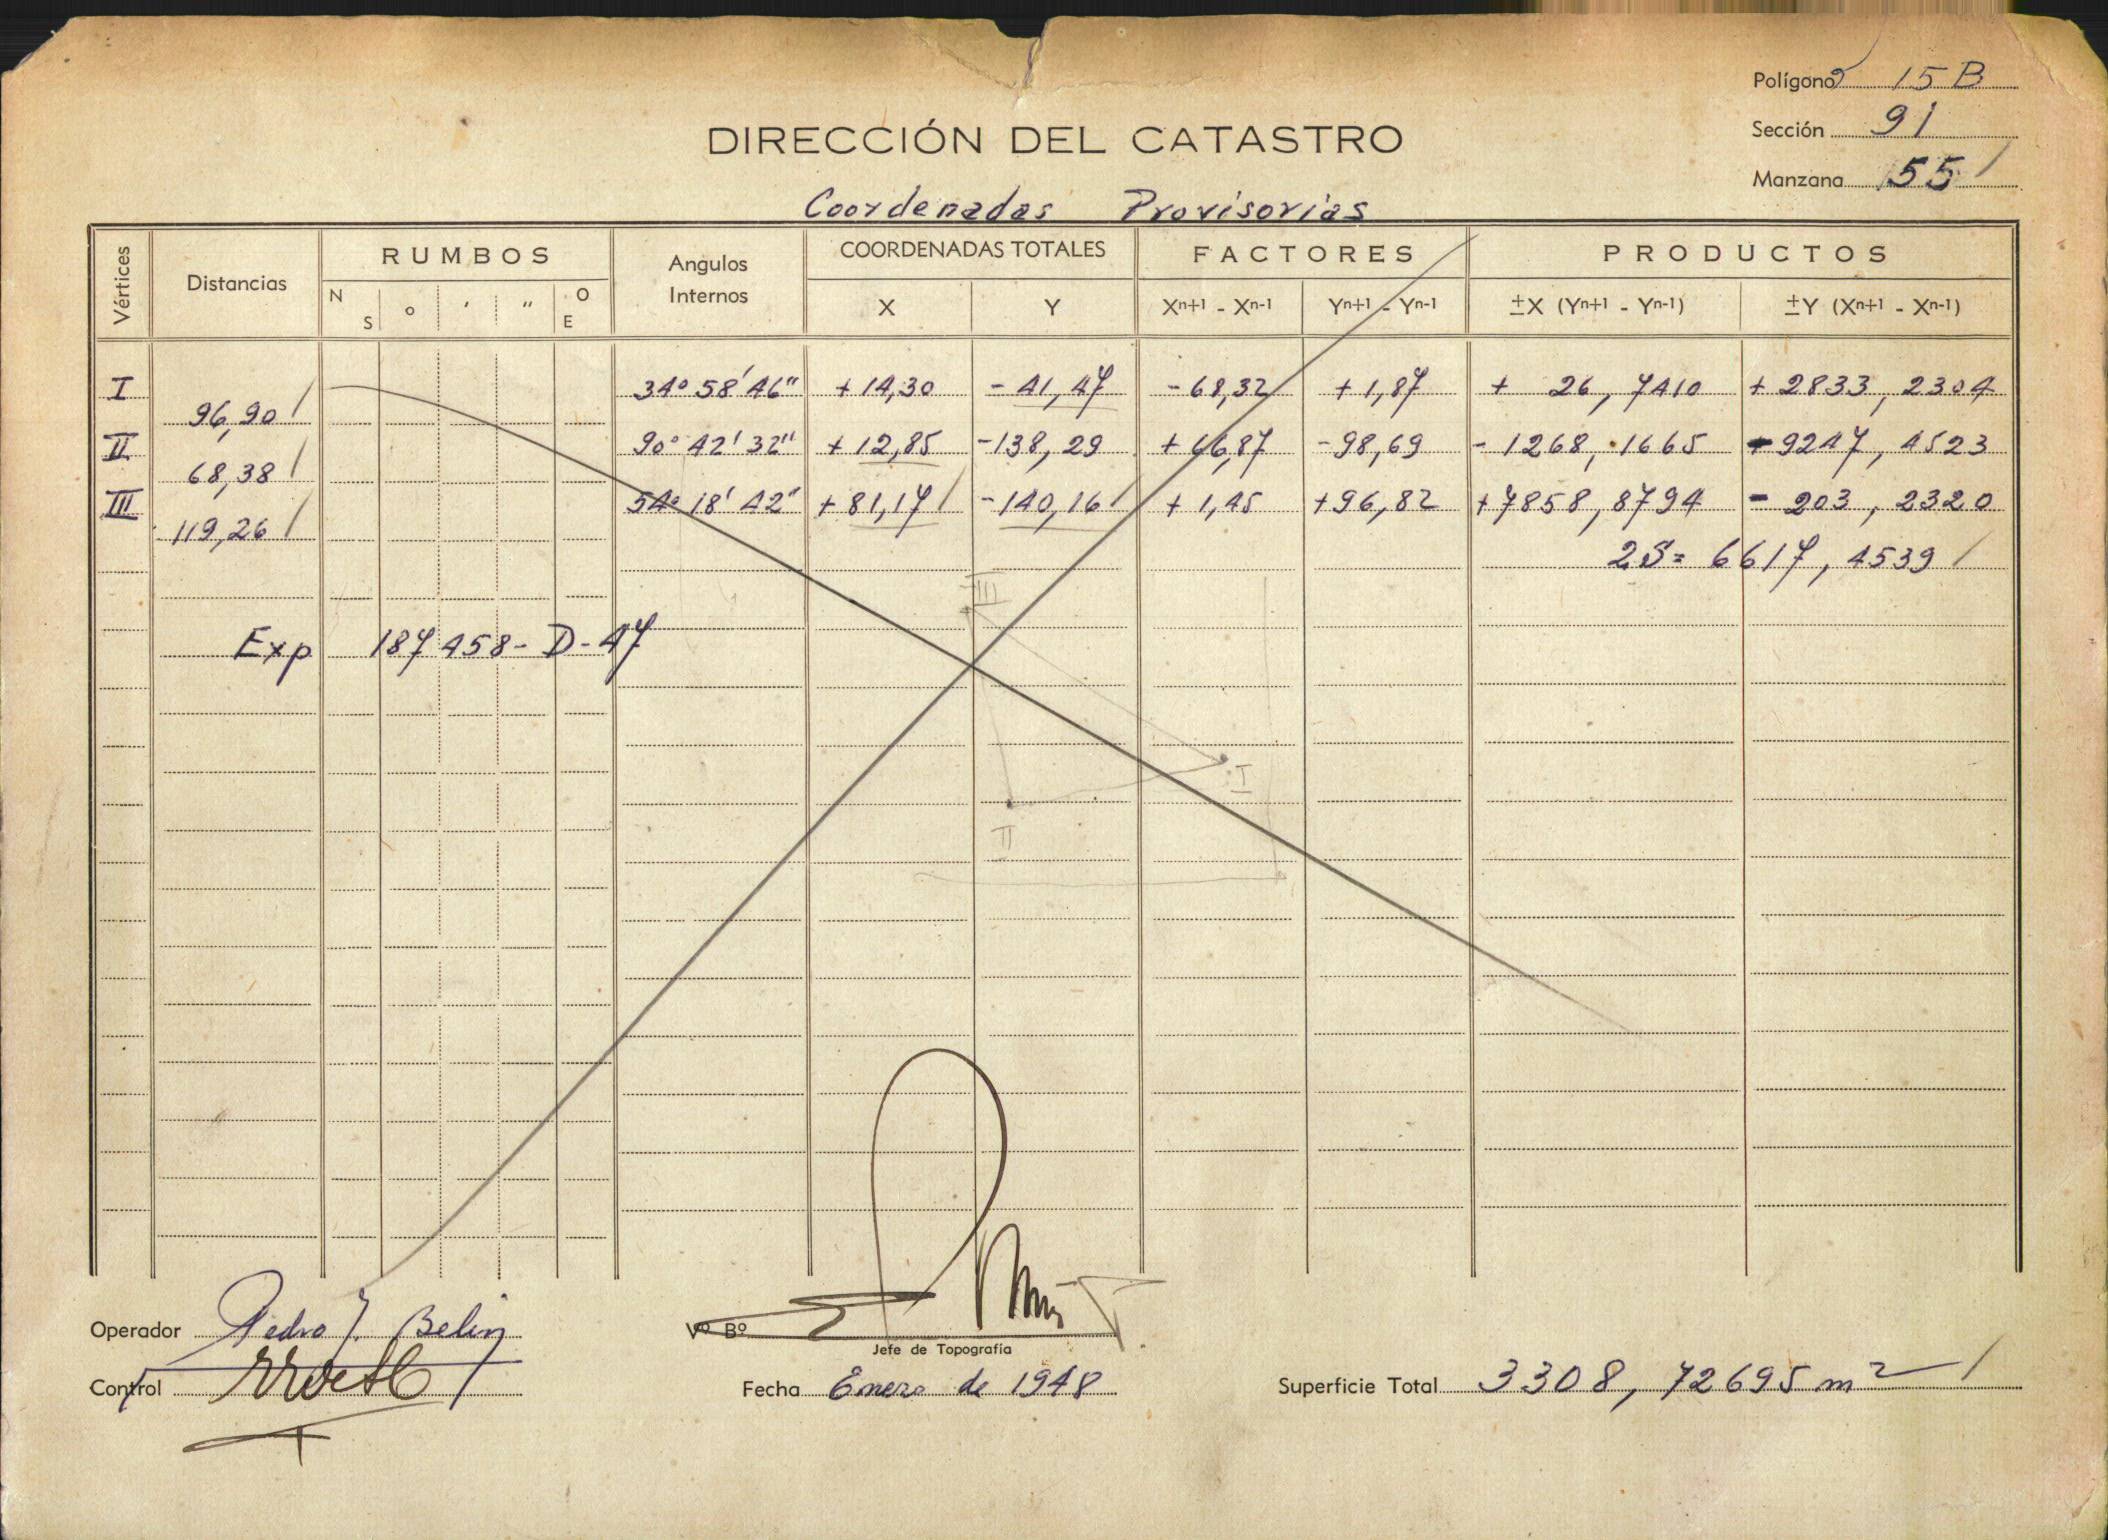 Polígono 15 B
Sección 91
Manzana 55
DIRECCIÓN DEL CATASTRO
Coordenadas Provisorias
Vértices Distancias RUMBOS Angulos Internos COORDENADAS TOTALES FACTORES PRODUCTOS
N S ° ' " O E X Y Xn+1 - Xn-1 Yn+1 - Yn-1 ±X (Yn+1 - Yn-1) ±Y (Xn+1 - Xn-1)
I 34° 58' 46" + 14,30 - 41,47 - 68,32 + 1,87 + 26,7410 + 2833,2304
96,90
II 90° 42' 32" + 12,85 - 138,29 + 66,87 - 98,69 - 1268,1665 - 9247,4523
68,38
III 54° 18' 42" + 81,17 - 140,16 + 1,45 + 96,82 + 7858,8794 - 203,2320
119,26
2S = 6617,4539
III
Exp 187458 - D - 47
I
II
Operador Pedro J. Belin
Vº Bº
Jefe de Topografía
Control
Fecha Enero de 1948
Superficie Total 3308,72695 m2